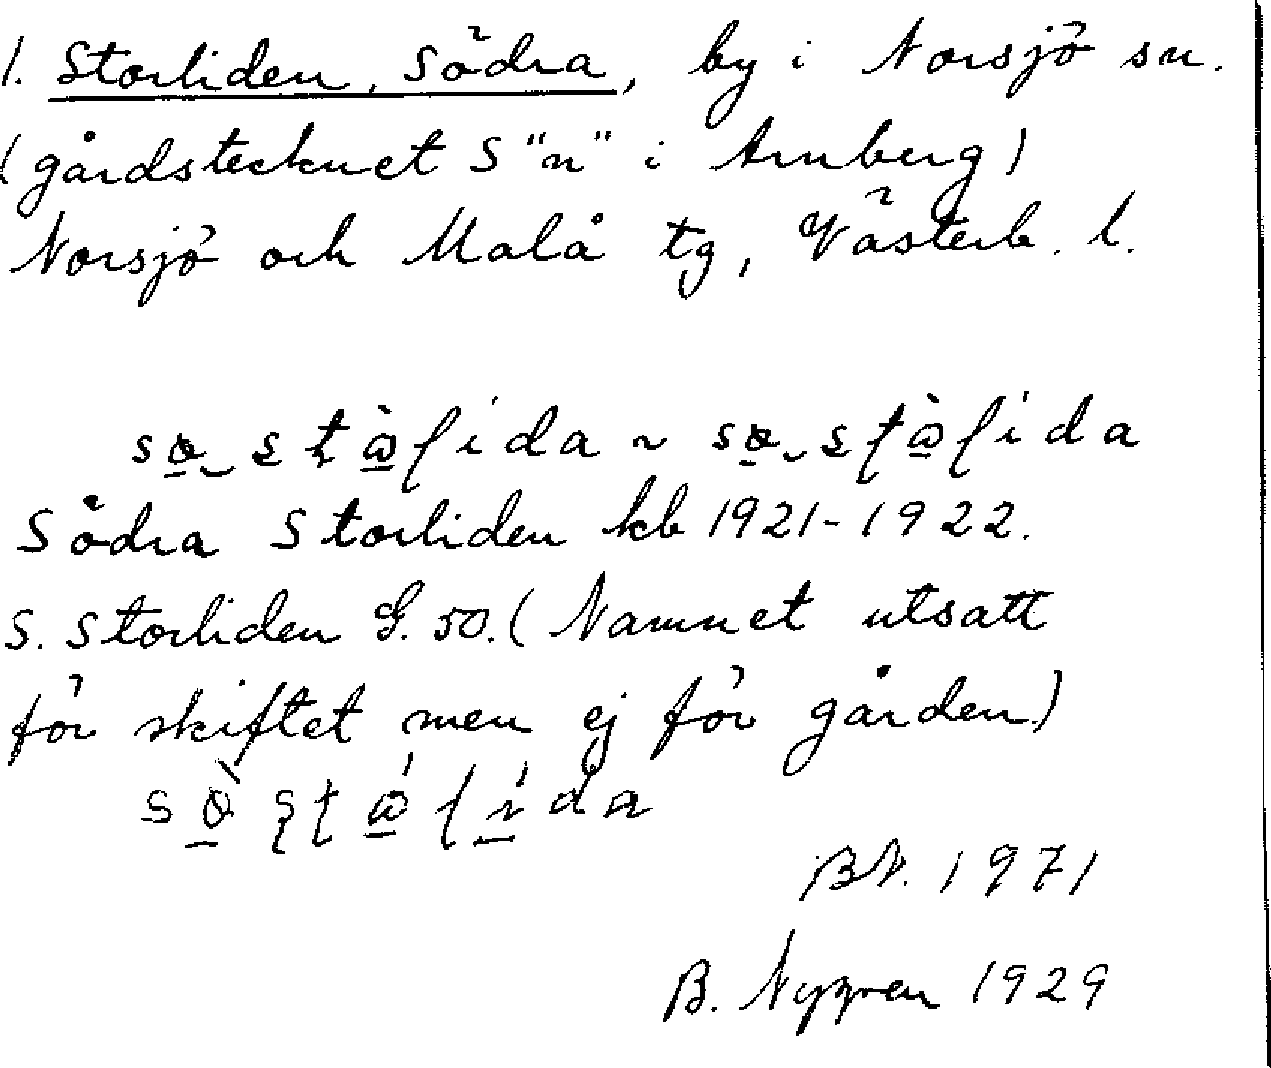 1. Storliden, Södra, by i Norsjö sn.
(gårdstecknet S "n" i Arnberg)
Norsjö och Malå tg, Västerb. l.
Södra Storliden kb 1921-1922.
S. Storliden G. 50. (Namnet utsatt
för skiftet men ej för gården)
BN. 1971
B. Nygren 1929